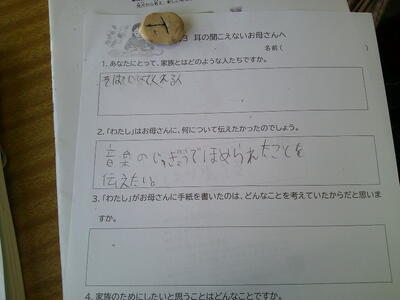 耳の聞こえないお母さんへ
名前(
1.あなたにとって、家族とはどのような人たちですか。
2.「わたし」はお母さんに、何について伝えたかったのでしょう。
音楽のじゅぎょうでほめられたことを
伝えたい。
3.「わたし」がお母さんに手紙を書いたのは、どんなことを考えていたからだと思いま
すか。
4.家族のためにしたいと思うことはどんなことですか。